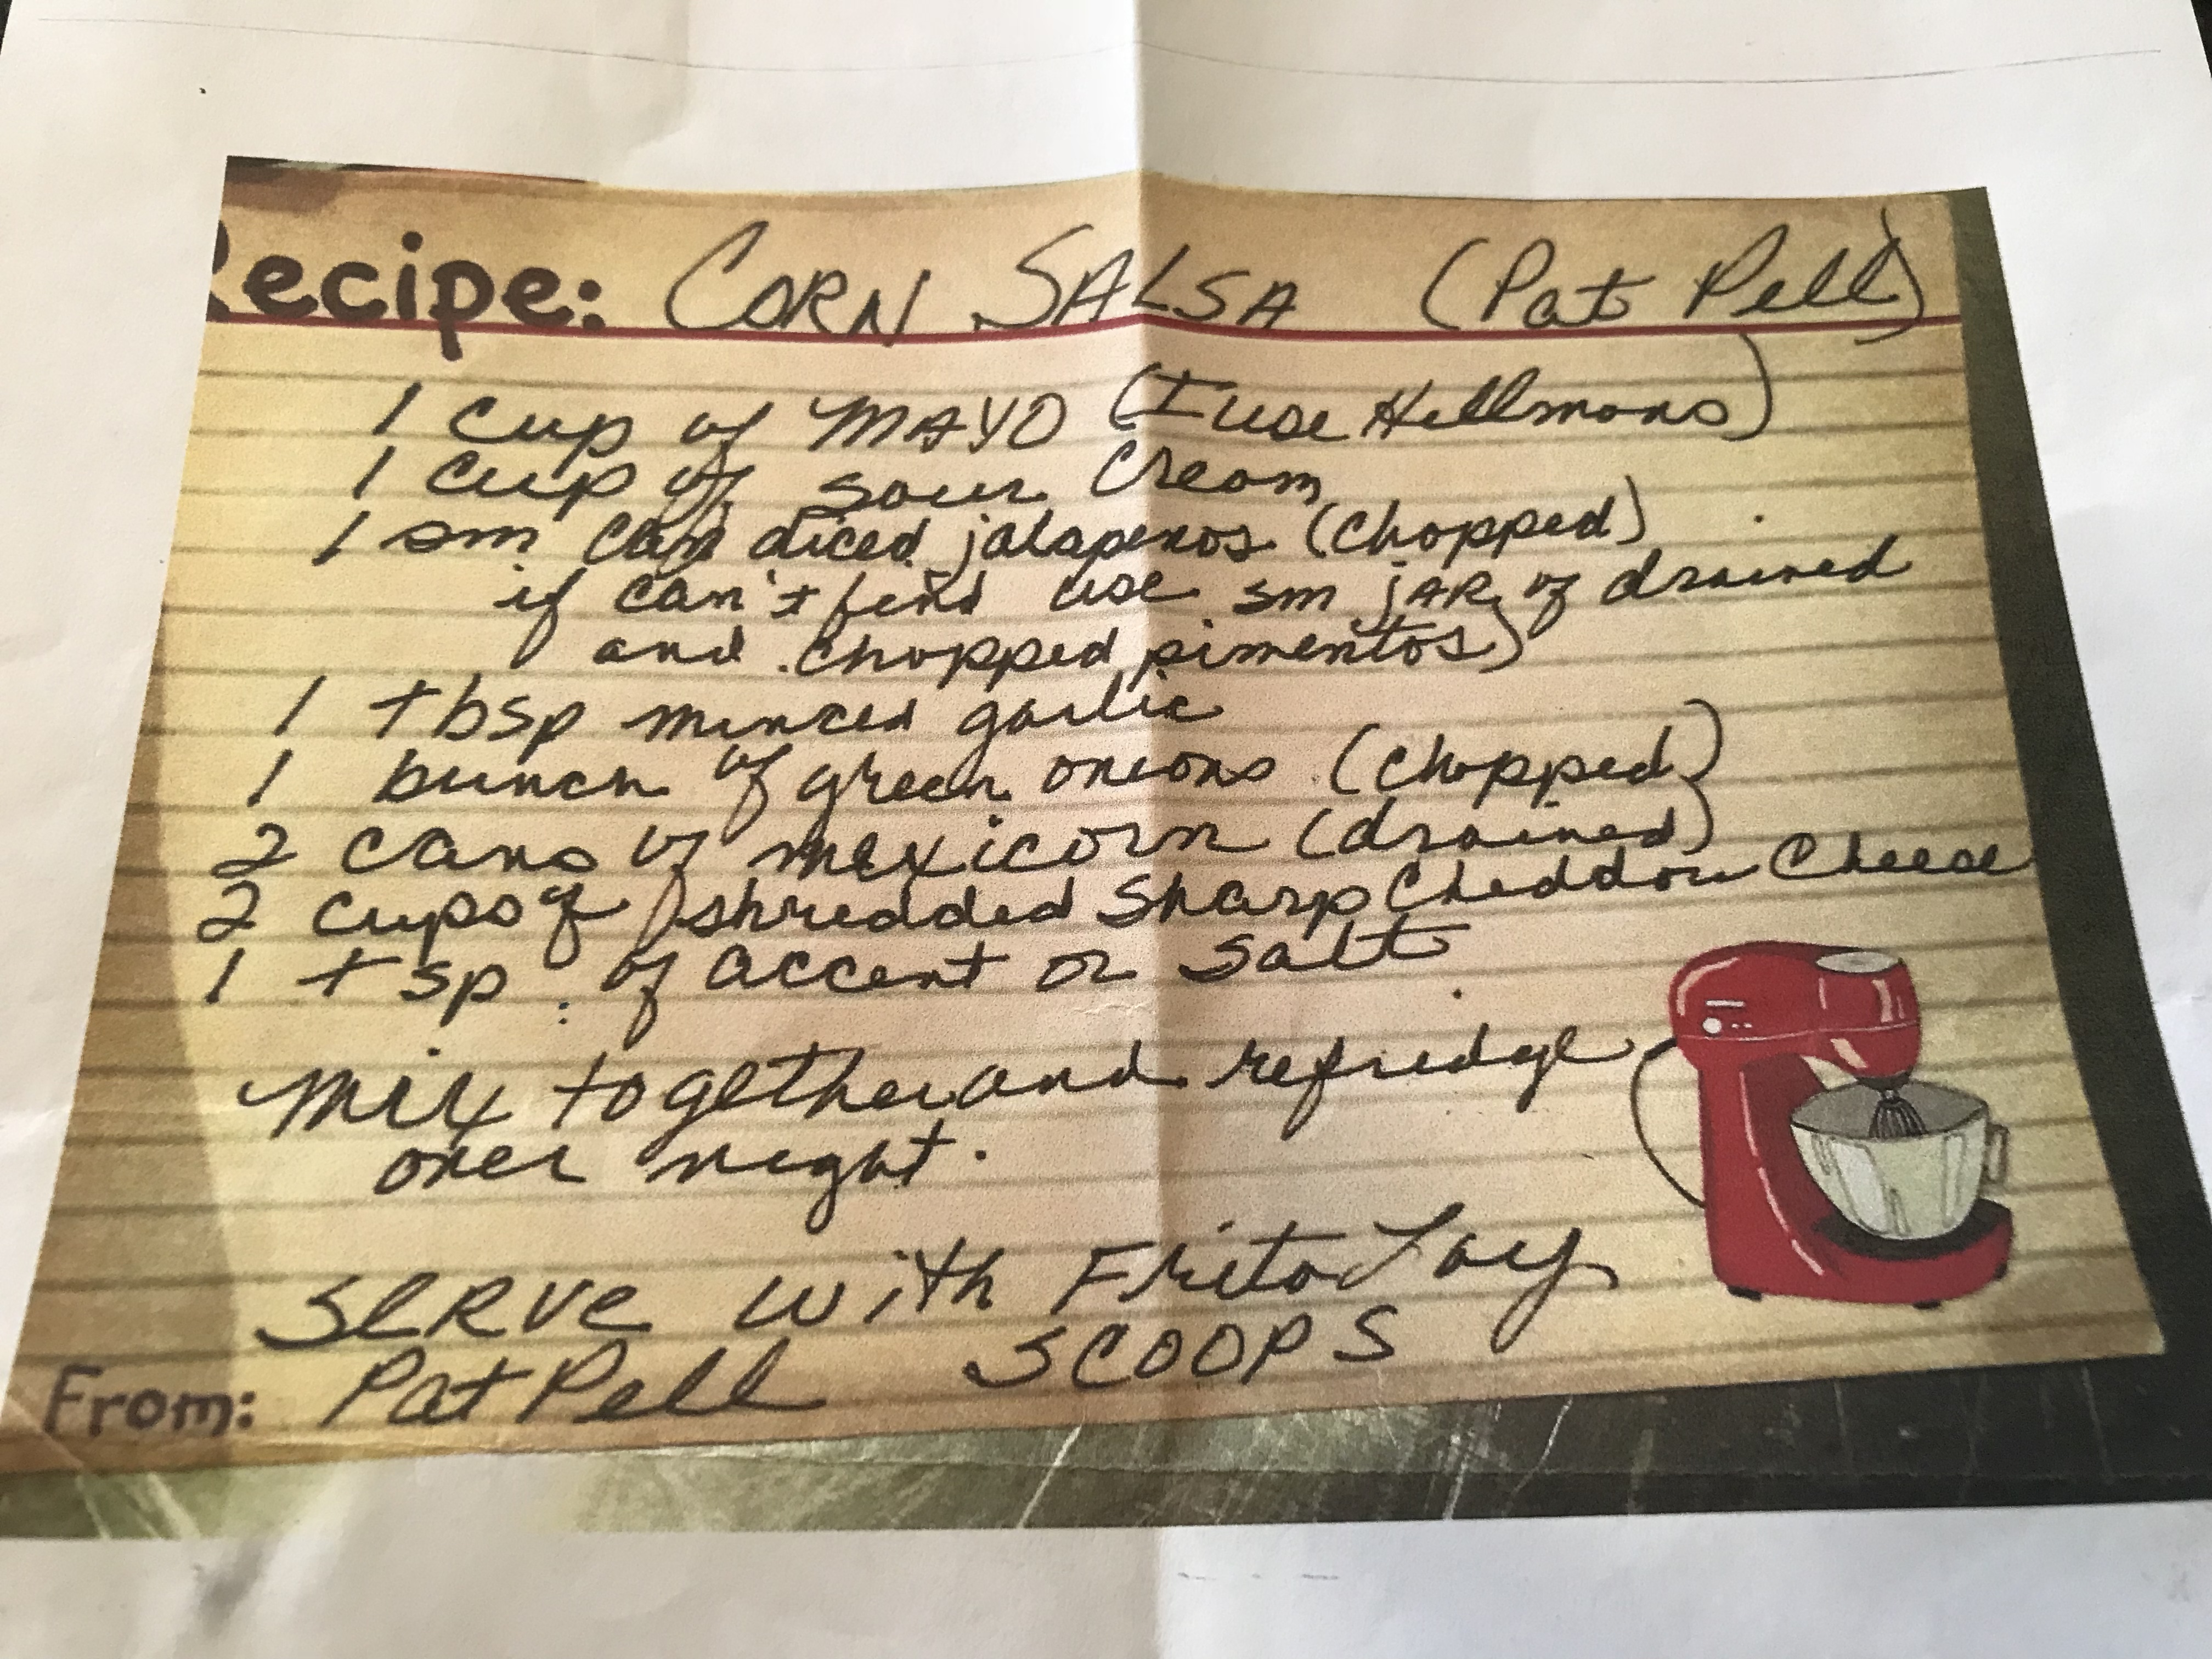 Recipe: CORN SALSA (Pat Pell)
1 cup of MAYO (I use Hellmons)
1 cup of Sour Cream
1 sm can diced jalapenos (Chopped)
if can't find use sm jAR of drained
and chopped pimentos)
1 tbsp minced garlic
1 bunch of green onions (chopped)
2 cans of mexicorn (drained)
2 cups of shredded sharp Cheddar Cheese
1 tsp of accent or salt
Mix together and refridge
over night.
SERVE with Frito Lay
SCOOPS
From: Pat Pell